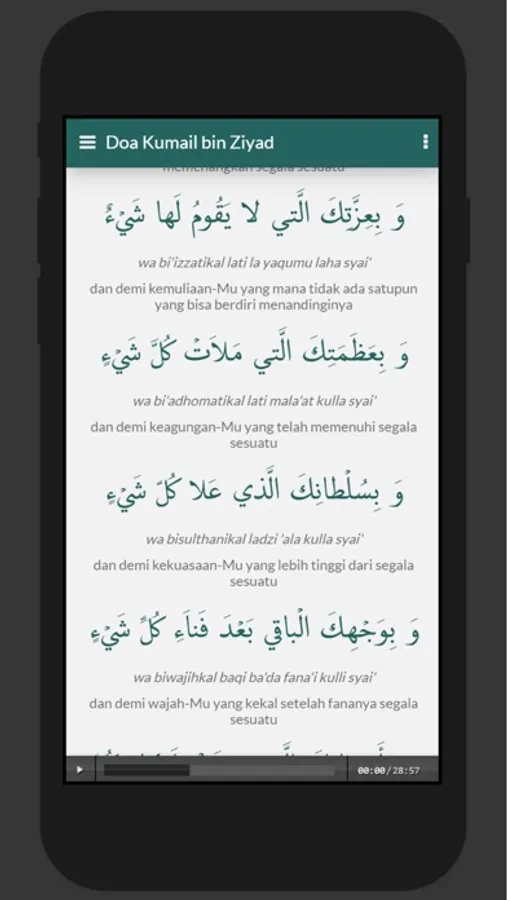 Doa Kumail bin Ziyad
memenangkan segala sesuatu
وَ بِعِزَّتِكَ الَّتي لا يَقُومُ لَها شَيْءٌ
wa bi'izzatikal lati la yaqumu laha syai'
dan demi kemuliaan-Mu yang mana tidak ada satupun
yang bisa berdiri menandinginya
وَ بِعَظَمَتِكَ الَّتي مَلاَتْ كُلَّ شَيْءٍ
wa bi'adhomatikal lati mala'at kulla syai'
dan demi keagungan-Mu yang telah memenuhi segala
sesuatu
وَ بِسُلْطانِكَ الَّذي عَلا كُلّ شَيْءٍ
wa bisulthanikal ladzi 'ala kulla syai'
dan demi kekuasaan-Mu yang lebih tinggi dari segala
sesuatu
وَ بِوَجْهِكَ الْباقي بَعْدَ فَناَءِ كُلِّ شَيْءٍ
wa biwajihkal baqi ba'da fana'i kulli syai'
dan demi wajah-Mu yang kekal setelah fananya segala
sesuatu
00:00/28:57